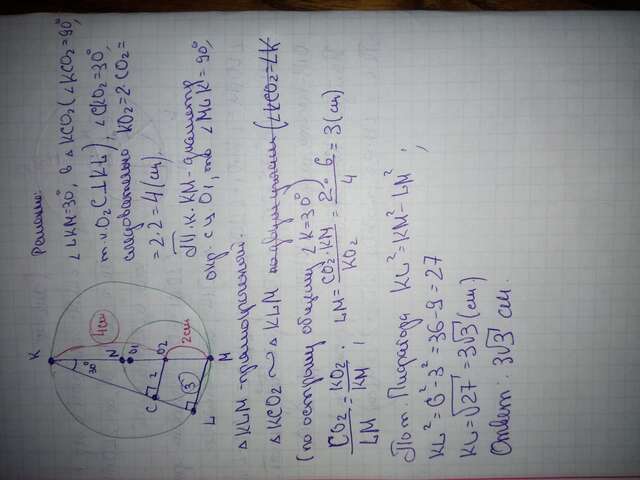 K
30°
4см
N
O1
C
2
O2
3
2см
L
M
Решение:
∠LKM=30°, в △KCO₂ (∠KCO₂=90°,
т.к. O₂C⊥KL), ∠CKO₂=30°,
следовательно KO₂=2·CO₂=
=2·2=4(см)
Т.к. KM-диаметр
окр. с ц O₁, то ∠MLK=90°,
△KLM-прямоугольный.
△KCO₂ ~ △KLM по двум углам (∠KCO₂=∠K
(по острому общему ∠K=30°)
CO₂/LM = KO₂/KM ; LM= CO₂·KM/KO₂ = 2·6/4 = 3(см)
По т. Пифагора KL²=KM²-LM² ;
KL²=6²-3²=36-9=27
KL=√27=3√3 (см)
Ответ: 3√3 см.